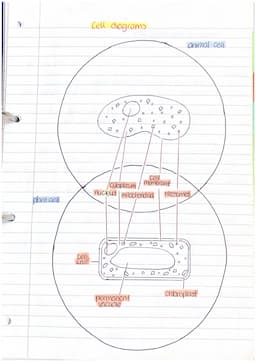 Cell diagrams
animal cell
cytoplasm
cell
membrane
nucleus
mitochondria
ribosomes
plant cell
cell
wall
permanent
vacuole
chloroplast